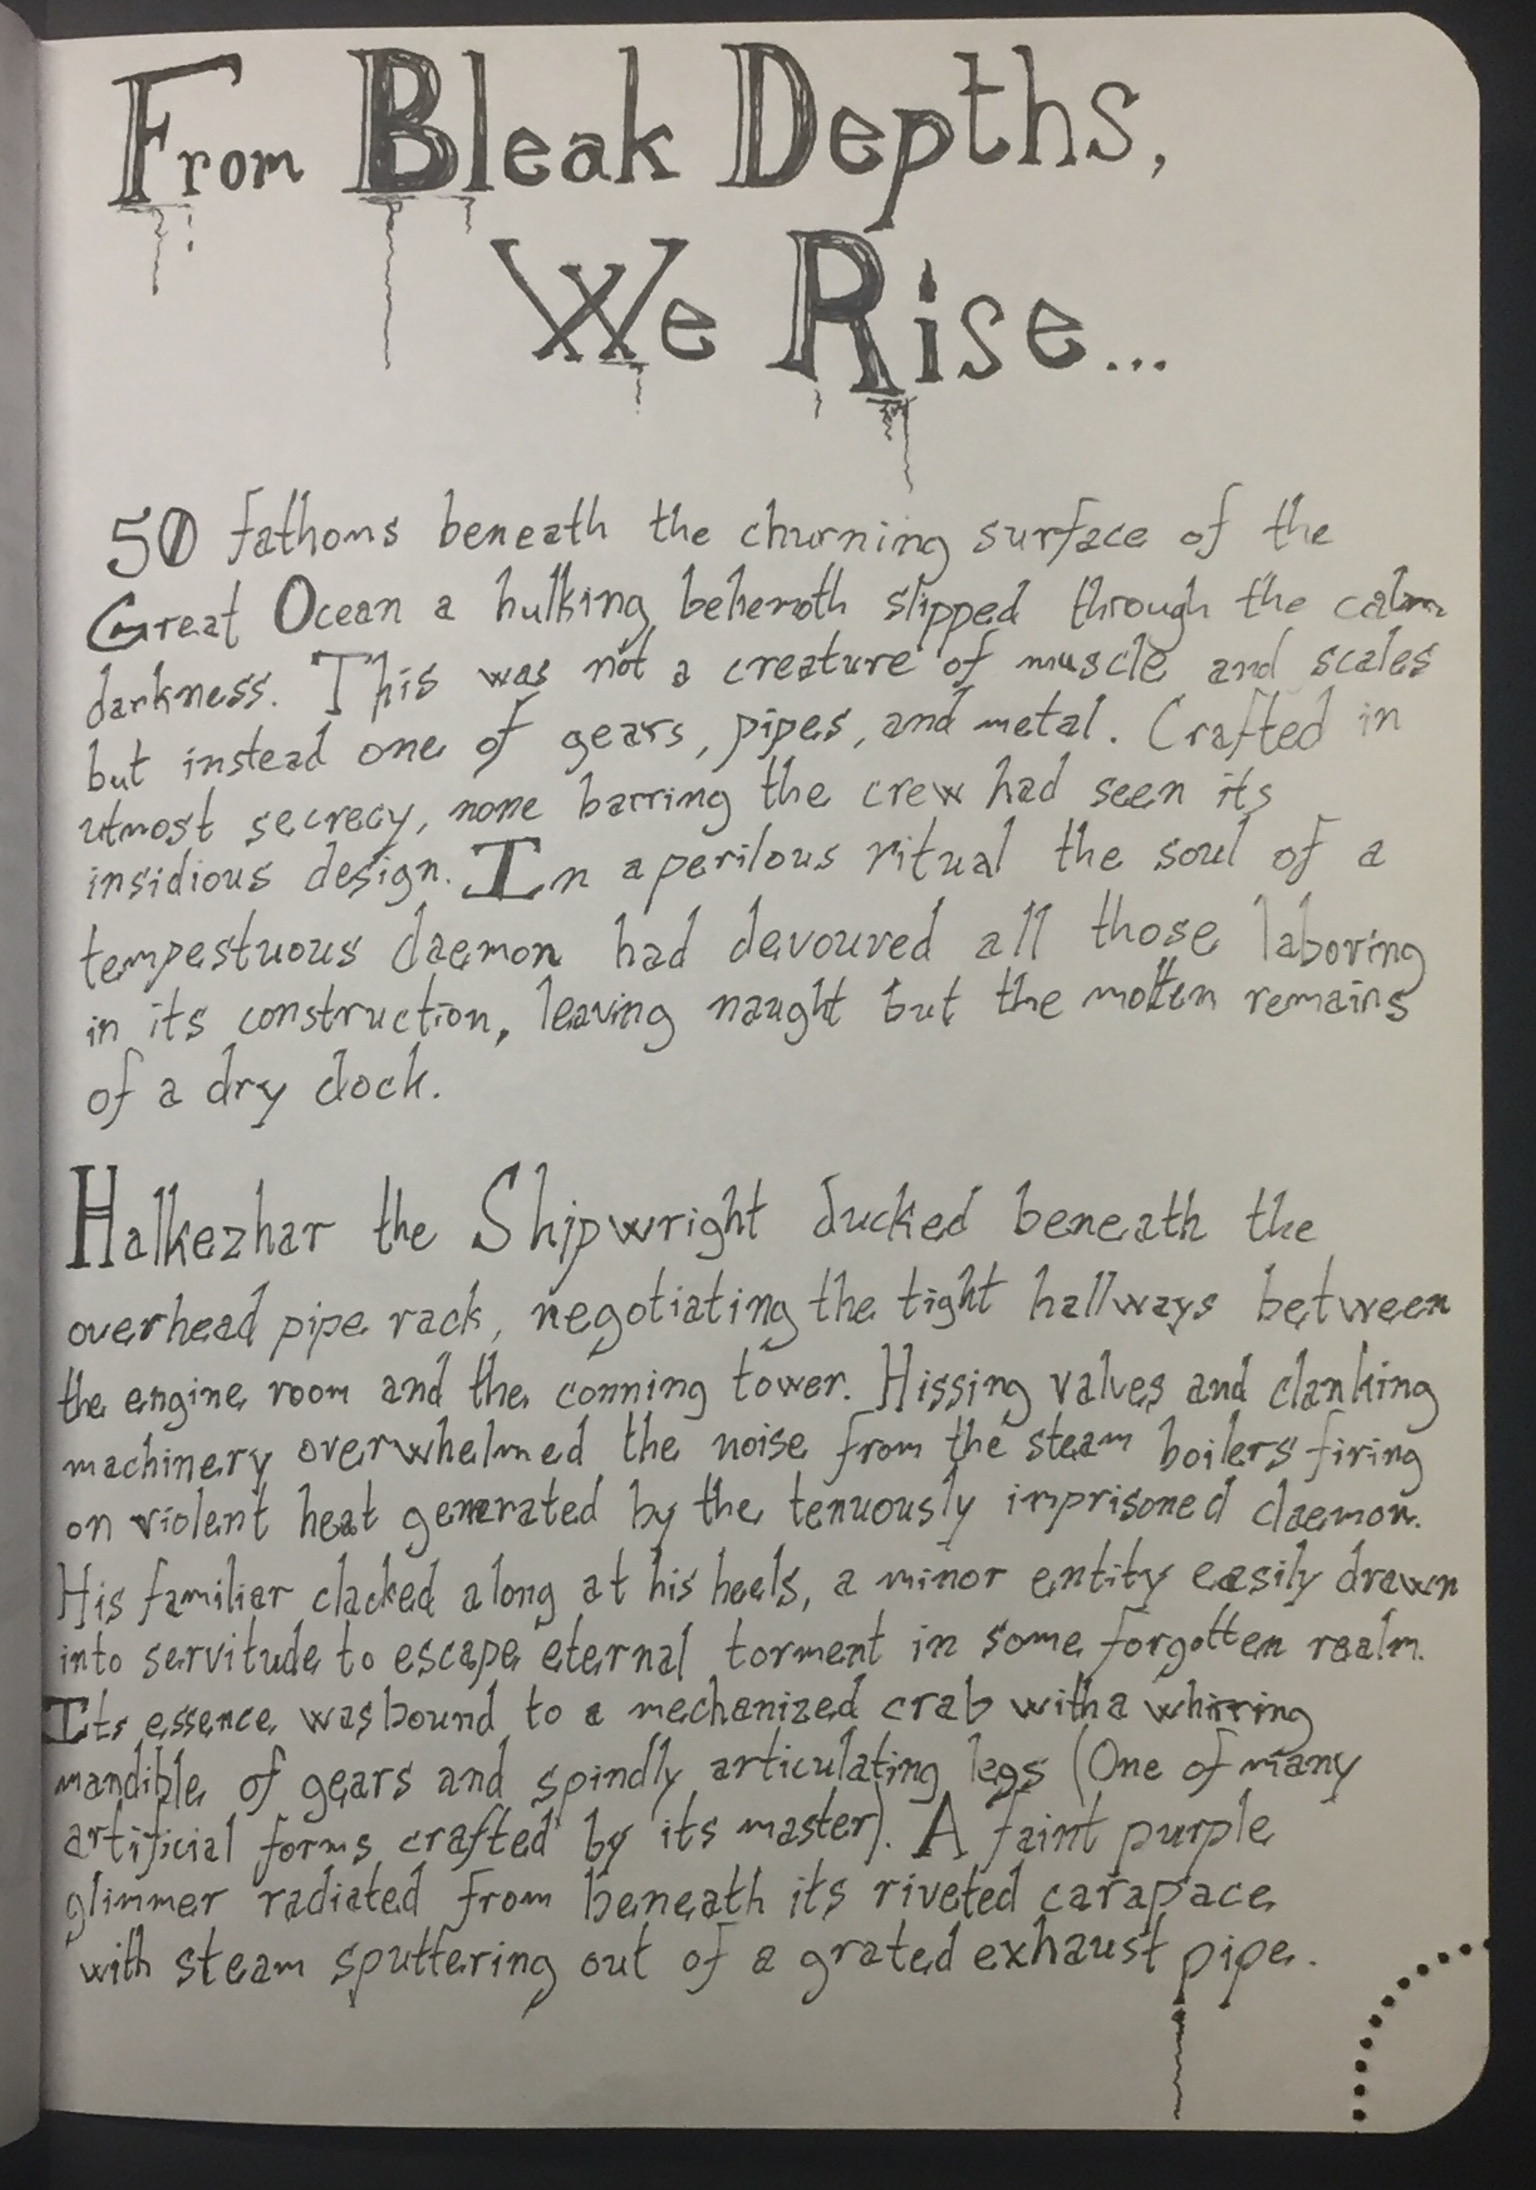 From Bleak Depths,
We Rise...
50 fathoms beneath the churning surface of the
Great Ocean a hulking behemoth slipped through the calm
darkness. This was not a creature of muscle and scales
but instead one of gears, pipes, and metal. Crafted in
utmost secrecy, none barring the crew had seen its
insidious design. In a perilous ritual the soul of a
tempestuous daemon had devoured all those laboring
in its construction, leaving naught but the molten remains
of a dry dock.
Halkezhar the Shipwright ducked beneath the
overhead pipe rack, negotiating the tight hallways between
the engine room and the conning tower. Hissing valves and clanking
machinery overwhelmed the noise from the steam boilers firing
on violent heat generated by the tenuously imprisoned daemon.
His familiar clacked along at his heels, a minor entity easily drawn
into servitude to escape eternal torment in some forgotten realm.
Its essence was bound to a mechanized crab with a whirring
mandible of gears and spindly articulating legs (One of many
artificial forms crafted by its master). A faint purple
glimmer radiated from beneath its riveted carapace
with steam sputtering out of a grated exhaust pipe.